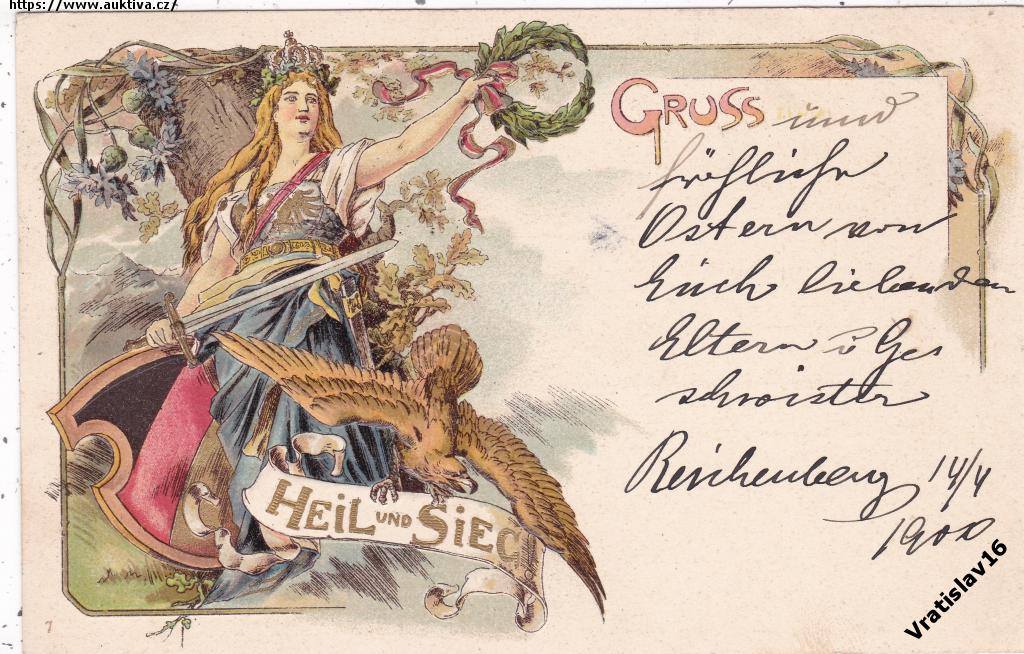 https://www.auktiva.cz/
GRUSS und
fröhliche
Ostern von
Euch liebenden
Eltern u Ge
schwister
Reichenberg 14/4
1900
HEIL UND SIEG
Vratislav16